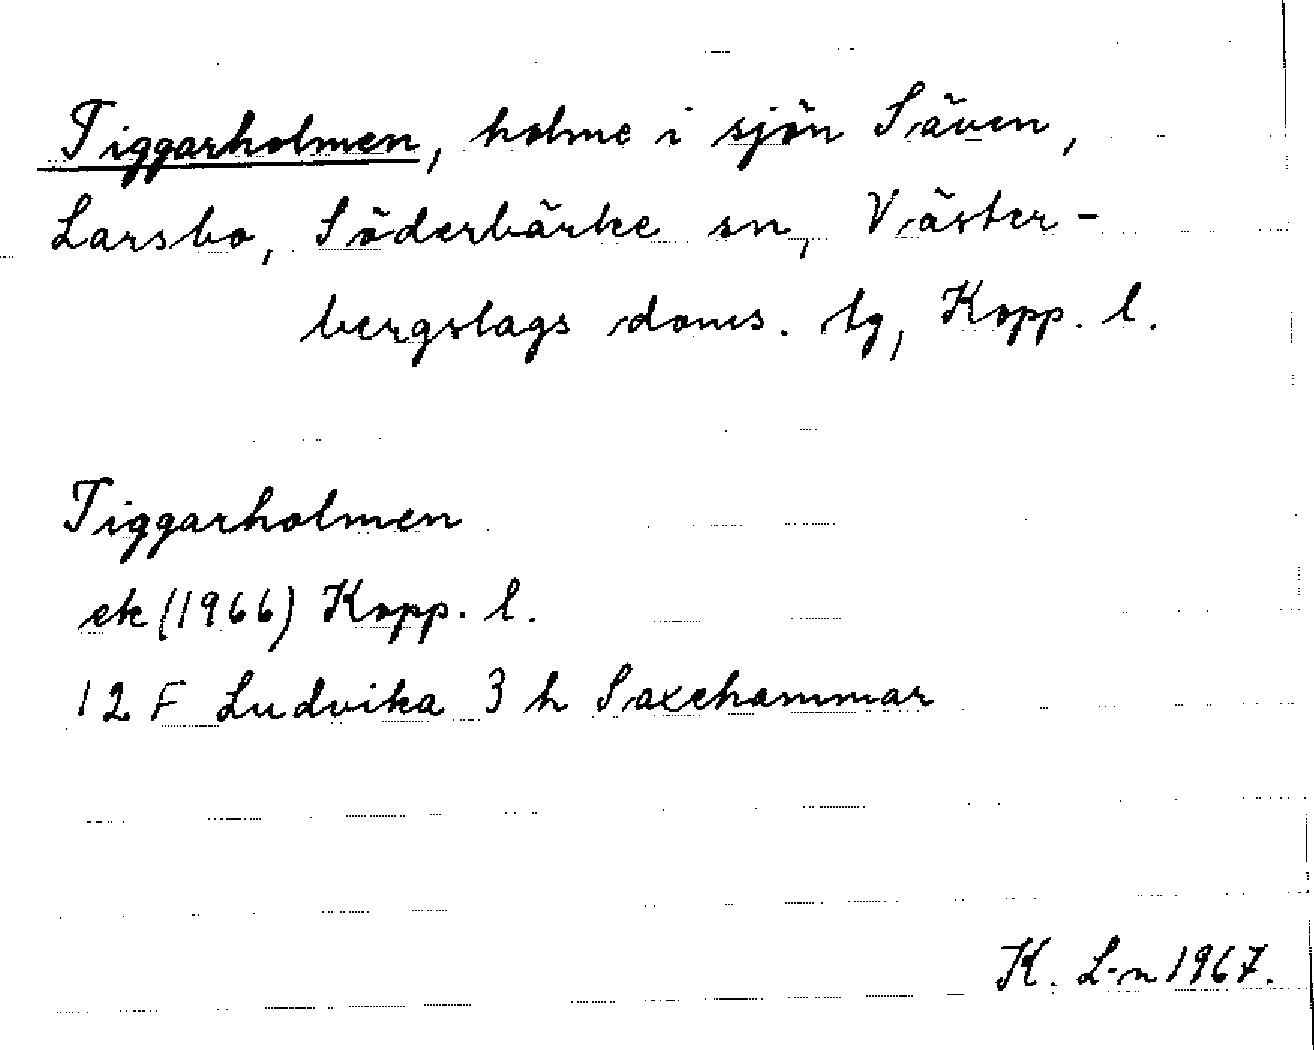 Tiggarholmen, holme i sjön Säven,
Larsbo, Söderbärke sn, Väster-
bergslags doms. tg, Kopp. l.
Tiggarholmen
ek (1966) Kopp. l.
12 F Ludvika 3 h Saxehammar
K. L-n 1967.